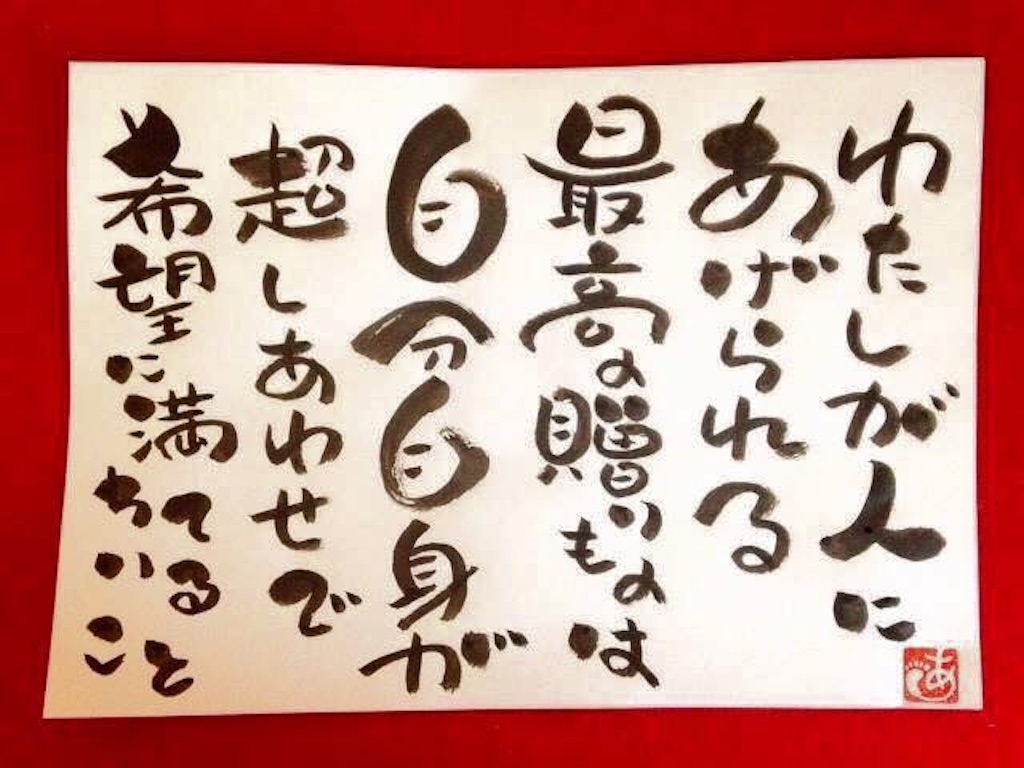 わたしが人に
あげられる
最高の贈りものは
自分自身が
超しあわせで
希望に満ちていること
あ